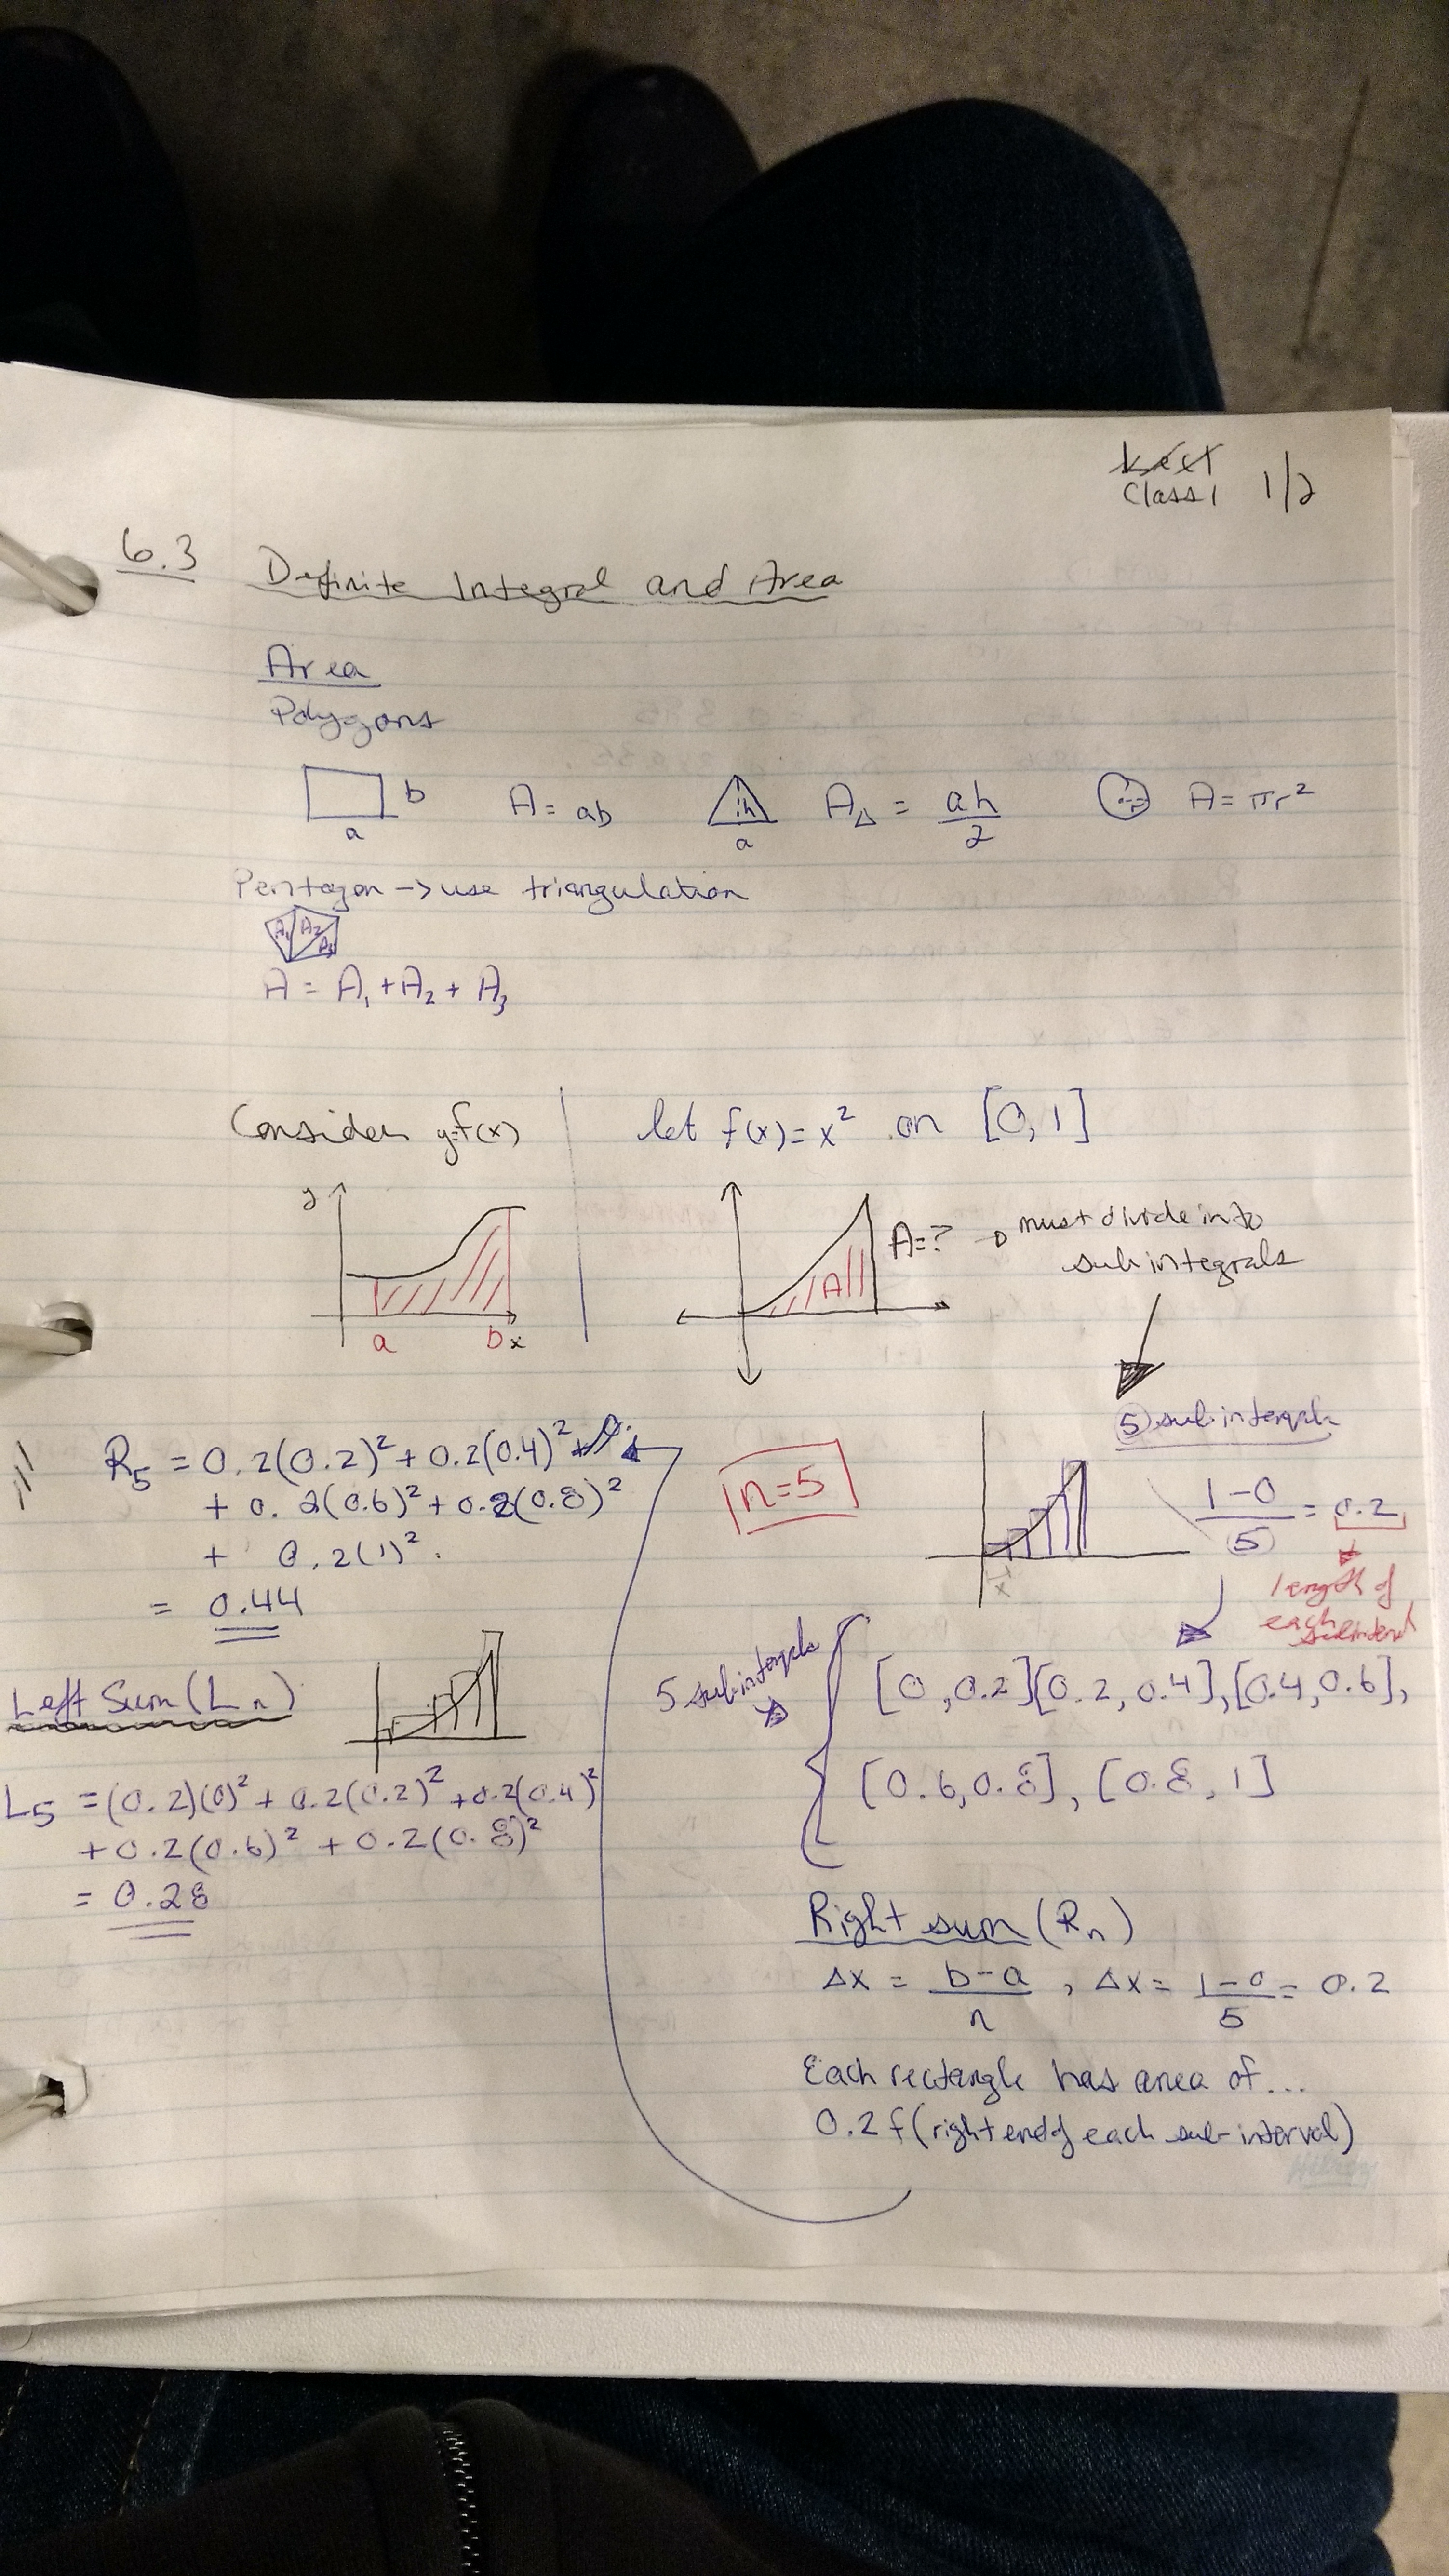 Class 1 1/2
6.3 Definite Integral and Area
Area
Polygons
b
a
A = ab
h
a
A△ = ah/2
r
A = πr²
Pentagon -> use triangulation
A₁ A₂ A₃
A = A₁ + A₂ + A₃
Consider y=f(x)
y
a b x
let f(x) = x² on [0,1]
A
A=? → must divide into
sub integrals
R₅ = 0.2(0.2)² + 0.2(0.4)² +
+ 0.2(0.6)² + 0.2(0.8)²
+ 0.2(1)².
= 0.44
n=5
5 subintervals
1-0/5 = 0.2
length of
each subinterval
5 subintervals
[0,0.2][0.2,0.4],[0.4,0.6],
[0.6,0.8], [0.8,1]
Left Sum (Ln)
L5 = (0.2)(0)² + 0.2(0.2)² + 0.2(0.4)²
+ 0.2(0.6)² + 0.2(0.8)²
= 0.28
Right sum (Rn)
Δx = b-a/n , Δx = 1-0/5 = 0.2
Each rectangle has area of...
0.2 f(right end of each sub-interval)
Hilroy